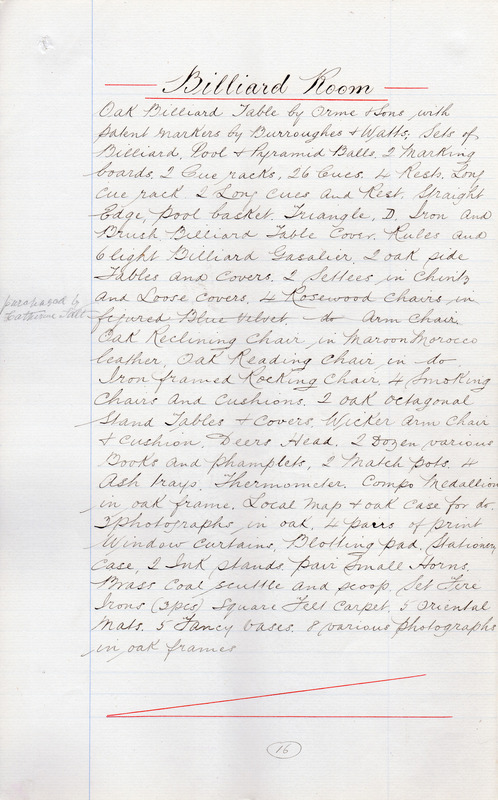 Billiard Room
Oak Billiard Table by Orme & Sons with
patent markers by Burroughes & Watts, Sets of
Billiard, Pool & Pyramid Balls, 2 Marking
boards, 2 Cue racks, 26 Cues. 4 Rests, Long
cue rack 2 Long cues and Rest. Straight
Edge, Pool basket. Triangle, D. Iron and
Brush Billiard Table Cover. Rules and
6 light Billiard Gasalier, 2 oak side
Tables and Covers. 2 Settees in Chintz
and Loose covers. 4 Rosewood Chairs in
figured Blue Velvet. - do - Arm Chair.
Oak Reclining Chair in Maroon Morocco
leather, Oak Reading Chair in - do.
Iron framed Rocking Chair, 4 Smoking
Chairs and Cushions. 2 oak octagonal
Stand Tables & Covers, Wicker Arm Chair
& Cushion. Deers Head. 2 Dozen various
Books and Phamplets, 2 Match pots. 4
Ash trays, Thermometer. Compo Medallion
in oak frame. Local Map & oak case for do.
3 Photographs in oak, 4 pairs of print
Window curtains, Blotting pad, Stationery
Case, 2 Ink stands. pair Small Horns,
Brass Coal scuttle and scoop, Set Fire
Irons (3pcs) Square Felt Carpet. 5 Oriental
Mats. 5 Fancy vases. 8 various photographs
in oak frames
to
Catherine
16